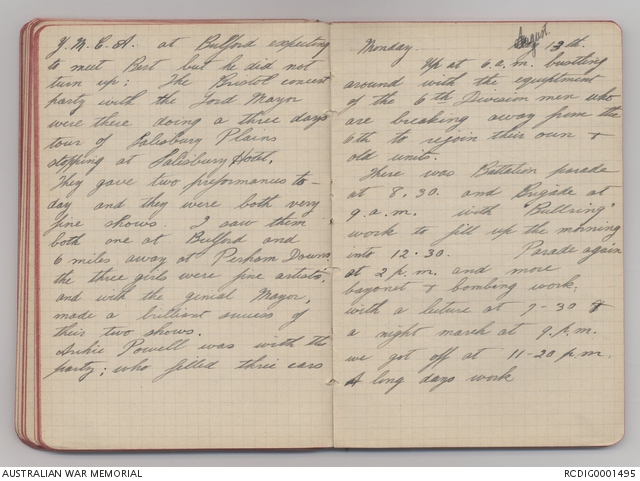 Y.M.C.A. at Bulford expecting
to meet Bert but he did not
turn up: The Bristol concert
party with the Lord Mayor
were there doing a three days
tour of Salisbury Plains
stopping at Salesbury Hotel.
They gave two preformances to-
day and they were both very
fine shows. I saw them
both one at Bulford and
6 miles away at Perham Downs
the three girls were fine artists,
and with the genial Mayor,
made a brilliant success of
their two shows.
Archie Powell was with the
party; who filled three cars
Monday. August 13th.
Up at 6 a.m. bustling
around with the equiptment
of the 6th Division men who
are breaking away from the
6th to rejoin their own &
old units.
There was Battalion parade
at 8.30. and Brigade at
9 a.m. with "Bullring"
work to fill up the morning
into 12.30. Parade again
at 2 p.m. and more
bayonet & bombing work;
with a leture at 7-30 &
a night march at 9.p.m.
we got off at 11-20 p.m.
A long days work
AUSTRALIAN WAR MEMORIAL
RCDIG0001495